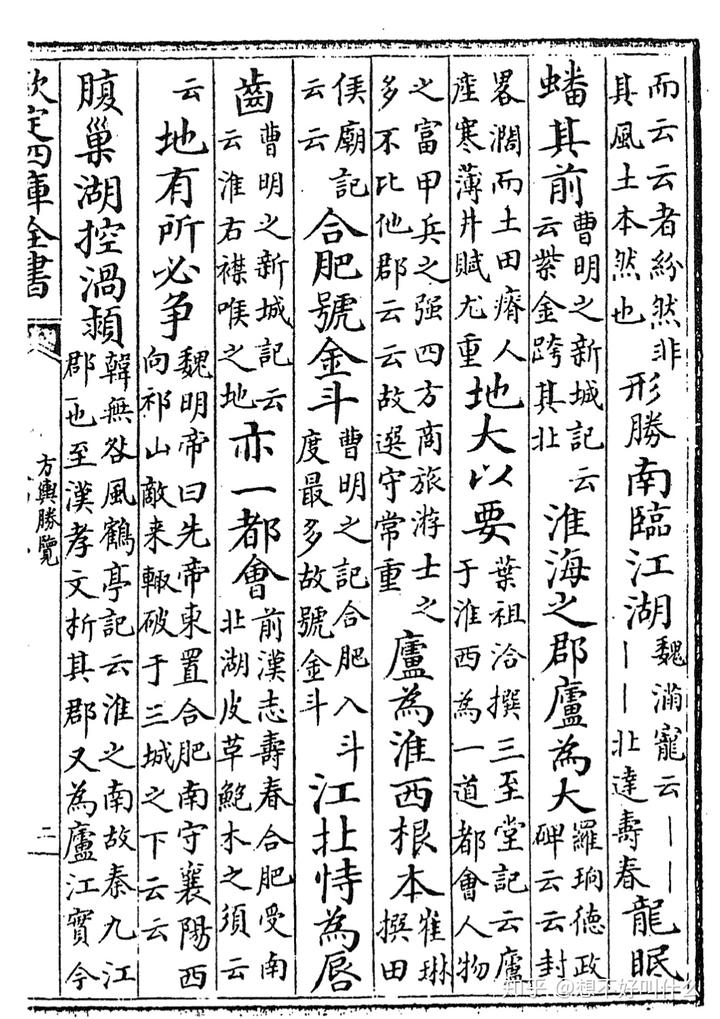 而云云者紛然非
其風土本然也
形勝南臨江湖
魏滿寵云｜｜
｜｜北達壽春
龍眠
蟠其前
曹明之新城記云
云紫金跨其北
淮海之郡廬為大
羅珦德政
碑云云封
畧濶而土田瘠人
産寒薄井賦尤重
地大以要
葉祖洽撰三至堂記云廬
于淮西為一道都會人物
之富甲兵之强四方商旅游士之
多不比他郡云云故選守常重
廬為淮西根本
崔琳
撰田
侯廟記
云云
合肥號金斗
曹明之記合肥入斗
度最多故號金斗
江北恃為唇
齒
曹明之新城記云
云淮右襟喉之地
亦一都會
前漢志壽春合肥受南
北湖皮革鮑木之須云
云
地有所必争
魏明帝曰先帝東置合肥南守襄陽西
向祁山敵来輙破于三城之下云云
腹巢湖控渦潁
韓無咎風鶴亭記云淮之南故秦九江
郡也至漢孝文析其郡又為廬江實今
欽定四庫全書
方輿勝覽
二
知乎 @想不好叫什么